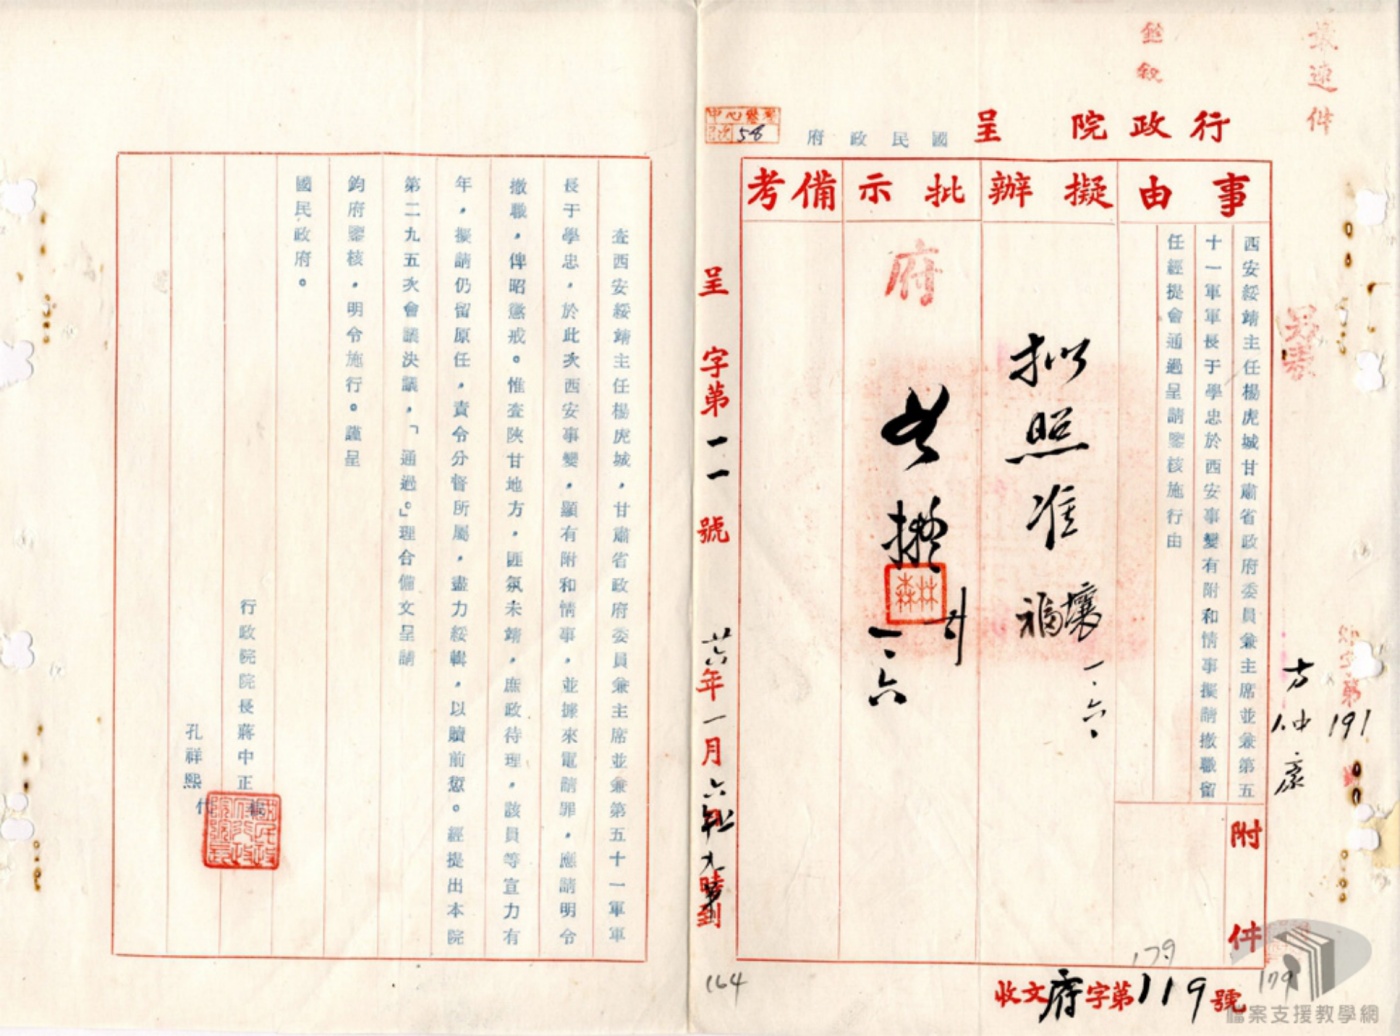 最速件
行政院 呈 國民政府
58
事由
擬辦
批示
備考
西安綏靖主任楊虎城甘肅省政府委員兼主席並兼第五
十一軍軍長于學忠於西安事變有附和情事擬請撤職留
任經提會通過呈請鑒核施行由
附件
擬照准
壤
福
一、六、
府
林森
一、六
呈 字第一一號
廿六年一月六
時到
收文府字第119號
179
179
191
164
查西安綏靖主任楊虎城，甘肅省政府委員兼主席並兼第五十一軍軍
長于學忠，於此次西安事變，顯有附和情事，並據來電請罪，應請明令
撤職，俾昭懲戒。惟查陝甘地方，匪氛未靖，庶政待理，該員等宣力有
年，擬請仍留原任，責令分督所屬，盡力綏輯，以贖前愆。經提出本院
第二九五次會議決議，「通過。」理合備文呈請
鈞府鑒核，明令施行。謹呈
國民政府。
行政院院長蔣中正
孔祥熙代
檔案支援教學網